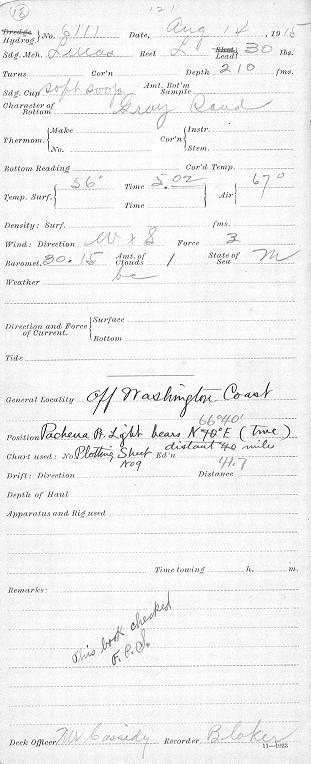 (18)
Dredge
Hydrog. } No. 8111 Date, Aug 14, 1915
Sdg. Mch. Lucas Reel L Shot Lead } 30 lbs.
Turns Cor'n Depth 210 fms.
Sdg. Cup soft soap Amt. Bot'm Sample
Character of Bottom Gray Sand
Thermom. { Make Cor'n { Instr.
No. Stem.
Bottom Reading Cor'd Temp.
Temp. Surf. { 56° Time 5.02 Air { 67°
Time
Density: Surf. fms.
Wind: Direction W x S Force 3
Baromet. 30.15 Amt. of Clouds 1 State of Sea M
Weather bc
Direction and Force of Current. { Surface
Bottom
Tide
General Locality off Washington Coast
66°40'
Position Pachena Pt. Light bears N 70° E (true)
distant 40 mile
Chart used: No. Plotting Sheet Ed'n
No 9 41.7
Drift: Direction Distance
Depth of Haul
Apparatus and Rig used
Time towing h. m.
Remarks:
This book checked
F. P. S.
Deck Officer Mr Cassidy Recorder Blaker
11—1023